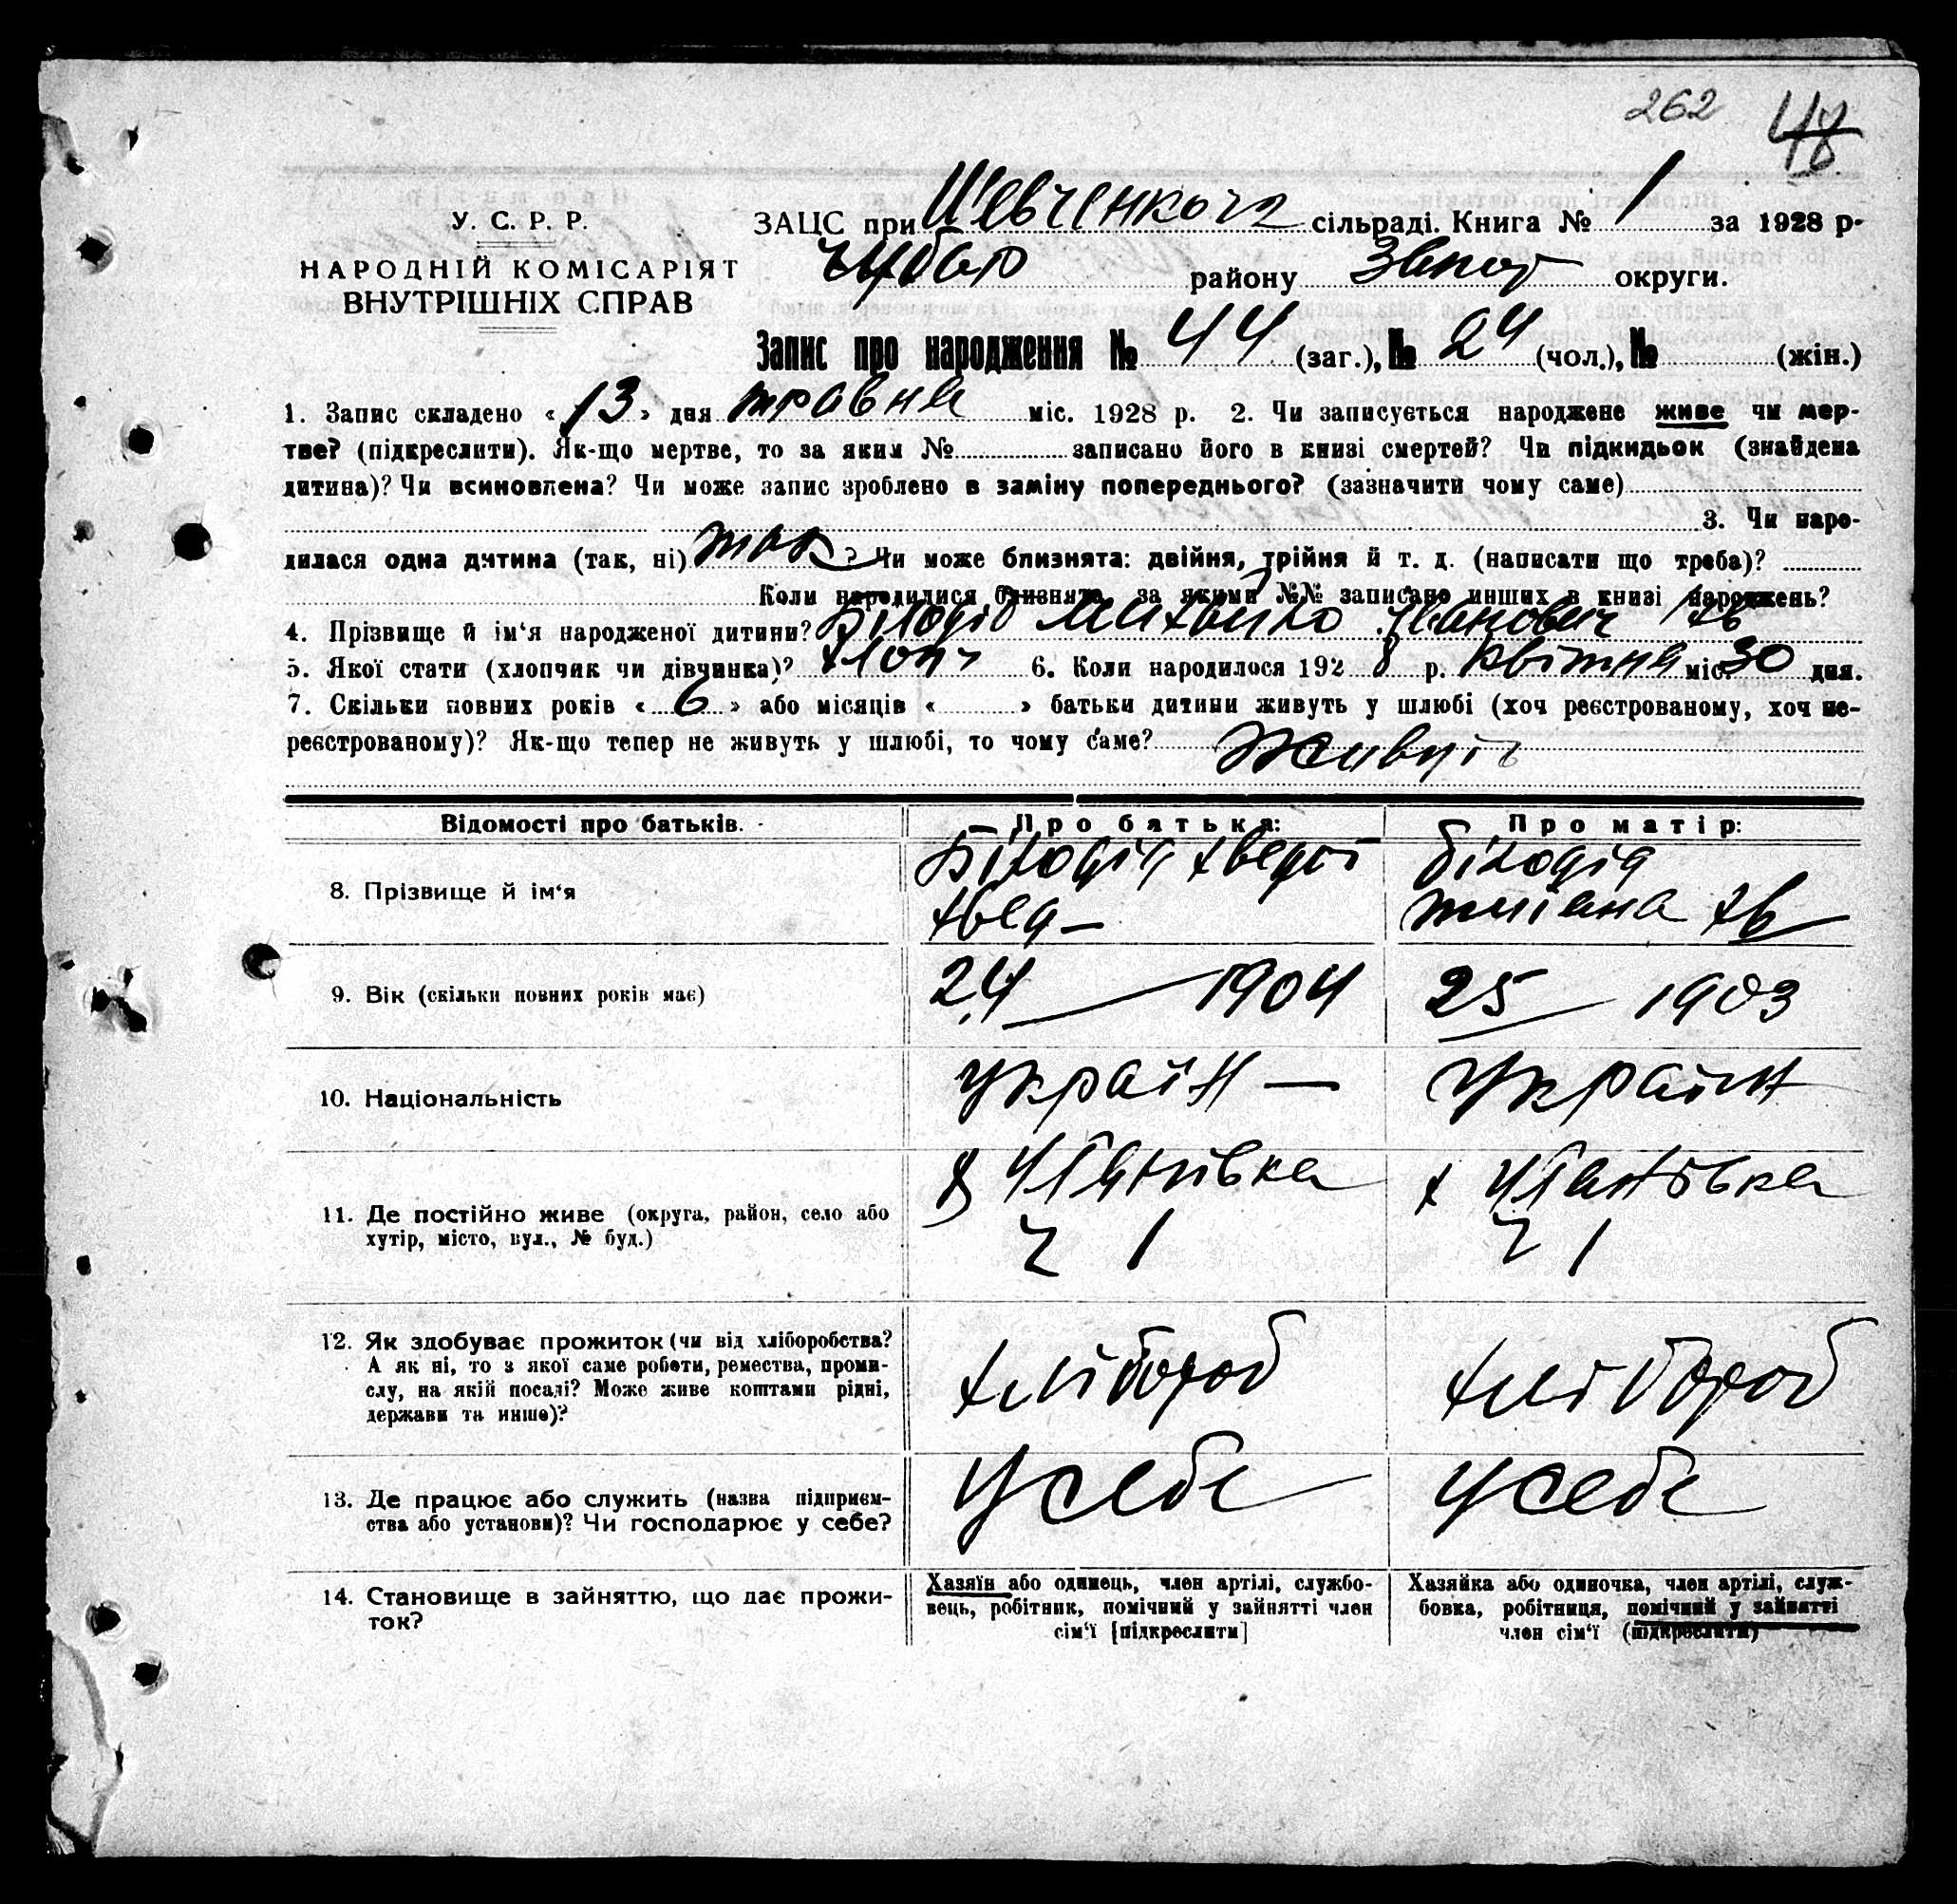 262 48
У. С. Р. Р.
НАРОДНІЙ КОМІСАРІЯТ
ВНУТРІШНІХ СПРАВ
ЗАЦС при Шевченкоча сільраді. Книга № 1 за 1928 р.
Чубар району Запор округи.
Запис про народження № 44 (заг.), № 24 (чол.), № (жін.)
1. Запис складено « 13 » дня травня міс. 1928 р. 2. Чи записується народжене живе чи мер-
тве? (підкреслити). Як-що мертве, то за яким № записано його в книзі смертей? Чи підкидьок (знайдена
дитина)? Чи всиновлена? Чи може запис зроблено в заміну попереднього? (зазначити чому саме)
3. Чи наро-
дилася одна дитина (так, ні) так ? Чи може близнята: двійня, трійня й т. д. (написати що треба)?
Коли народилися близнята, за якими №№ записано инших в книзі народжень?
4. Прізвище й ім'я народженої дитини? Білодід Михайло Іванович
5. Якої стати (хлопчик чи дівчинка)? хлопч 6. Коли народилося 1928 р. квітня міс. 30 дня.
7. Скільки повних років « 6 » або місяців « » батьки дитини живуть у шлюбі (хоч реєстрованому, хоч не-
реєстрованому)? Як-що тепер не живуть у шлюбі, то чому саме? Живуть
Відомості про батьків. Про батька: Про матір:
8. Прізвище й ім'я Білодід Хведот Білодід
Хвед — Тиіана Хв
9. Вік (скільки повних років має) 24 — 1904 25 — 1903
10. Національність Україн — Україн
11. Де постійно живе (округа, район, село або
хутір, місто, вул., № буд.)
х Уланівка х Уланівка
ч 1 ч 1
12. Як здобуває прожиток (чи від хліборобства?
А як ні, то з якої саме роботи, ремества, проми-
слу, на якій посаді? Може живе коштами рідні,
держави та инше)?
хлібороб хлібороб
13. Де працює або служить (назва підприєм-
ства або установи)? Чи господарює у себе?
У себе У себе
14. Становище в зайняттю, що дає прожи-
ток?
Хазяїн або одинець, член артілі, службо-
вець, робітник, помічний у зайнятті член
сім'ї [підкреслити]
Хазяйка або одиночка, член артілі, служ-
бовка, робітниця, помічний у зайнятті
член сім'ї (підкреслити)